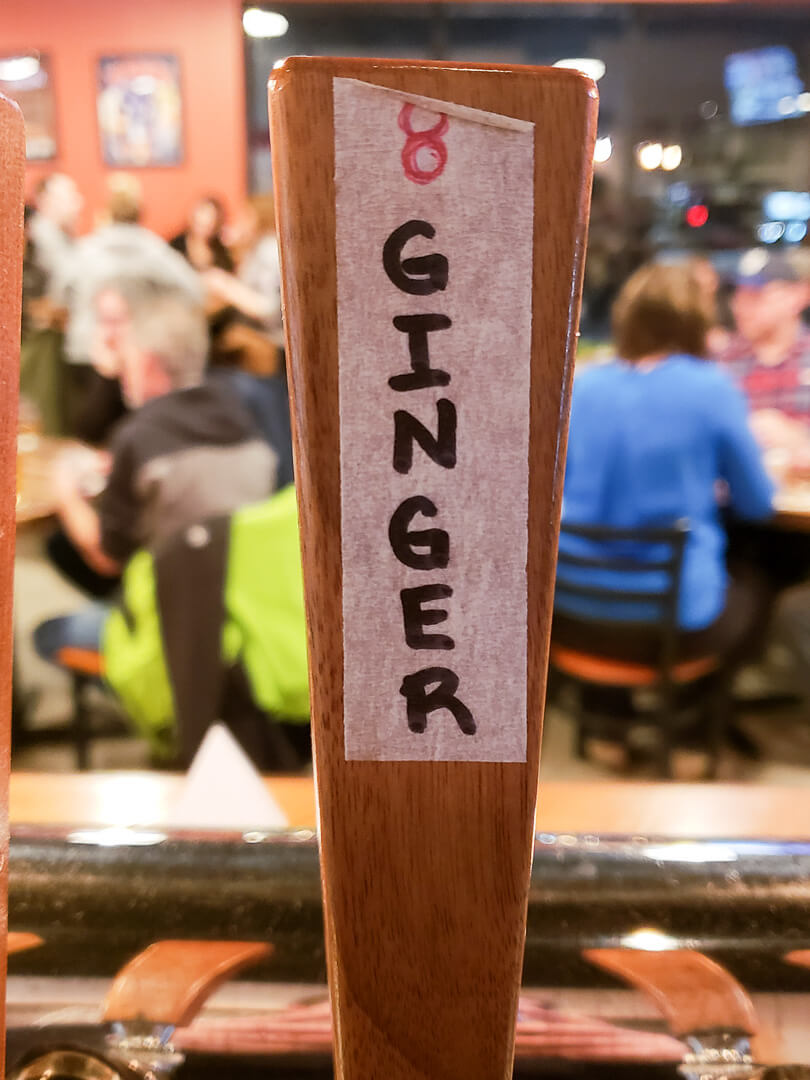 8
GINGER